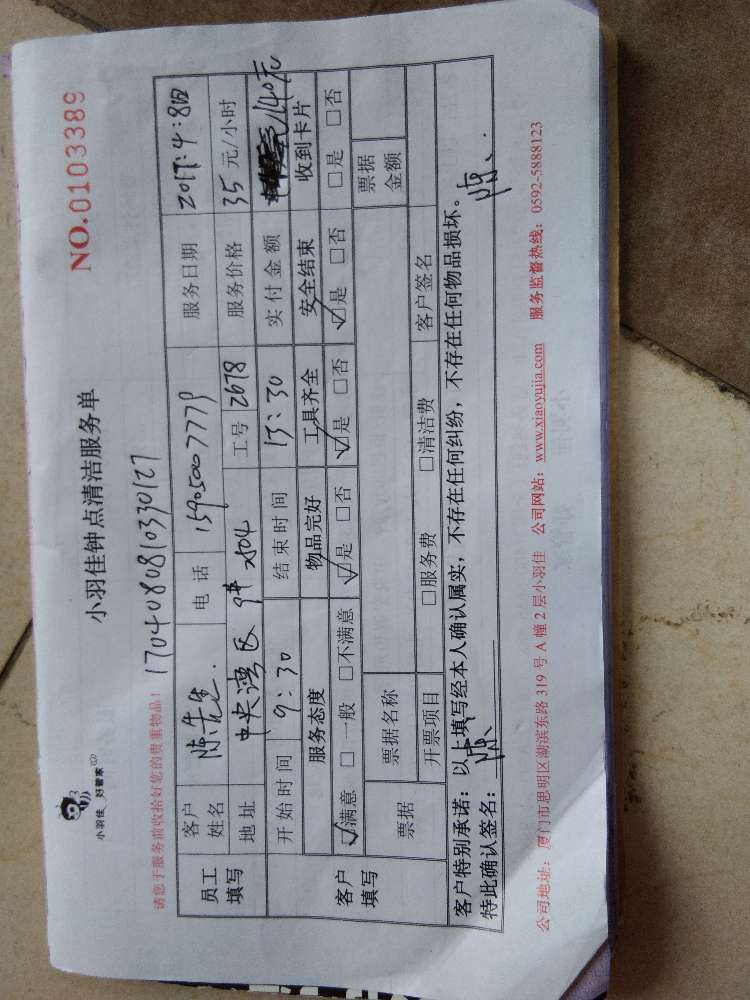 小羽佳 好管家
小羽佳钟点清洁服务单
NO.0103389
请您于服务前收拾好您的贵重物品！
1704080810330127
员工填写
客户姓名 陈先生. 电话 15905007779 服务日期 2017:4:8日
地址 中央湾区 9# 2404 工号 2678 服务价格 35元/小时
客户填写
开始时间 9:30 结束时间 13:30 实付金额 140元
服务态度 物品完好 工具齐全 安全结束 收到卡片
☑满意 □一般 □不满意 ☑是 □否 ☑是 □否 ☑是 □否 □是 □否
票据 票据名称 票据金额
开票项目 □服务费 □清洁费 客户签名
客户特别承诺：以上填写经本人确认属实，不存在任何纠纷，不存在任何物品损坏。
特此确认签名：陈、 陈、
公司地址：厦门市思明区湖滨东路 319 号 A 幢 2 层小羽佳 公司网站：www.xiaoyujia.com 服务监督热线：0592-5888123